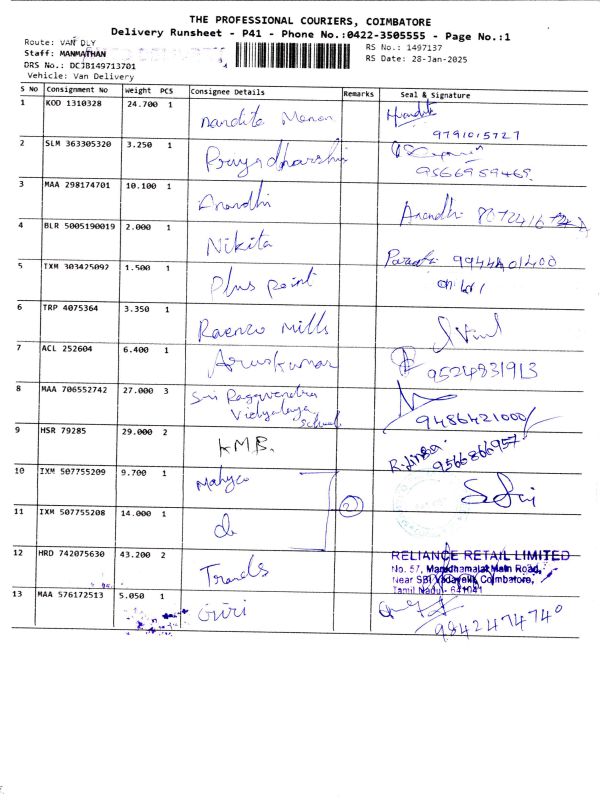 THE PROFESSIONAL COURIERS, COIMBATORE
Delivery Runsheet - P41 - Phone No.:0422-3505555 - Page No.:1
Route: VAN DLY
RS No.: 1497137
Staff: MANMATHAN
RS Date: 28-Jan-2025
DRS No.: DCJB149713701
Vehicle: Van Delivery
S No Consignment No Weight PCS Consignee Details Remarks Seal & Signature
1 KOD 1310328 24.700 1 Nandita Menon
9791015727
2 SLM 363305320 3.250 1 Priyadharshini
9566959469
3 MAA 298174701 10.100 1 Anandhi Anandhi
4 BLR 5005190019 2.000 1 Nikita
5 IXM 303425092 1.500 1 Plus point
6 TRP 4075364 3.350 1 Raenco Mills
7 ACL 252604 6.400 1 Arunkumar 9524831913
8 MAA 706552742 27.000 3 Sri Ragavendra
Vidyalaya
School
9486421000
9 HSR 79285 29.000 2 KMB.
9566866957
10 IXM 507755209 9.700 1 Mahyco
2
11 IXM 507755208 14.000 1 do
12 HRD 742075630 43.200 2 Trends
RELIANCE RETAIL LIMITED
No. 57, Marudhamalai Main Road,
Near SBI Vadavalli, Coimbatore,
Tamil Nadu - 641041
13 MAA 576172513 5.050 1 Giri
9842474740